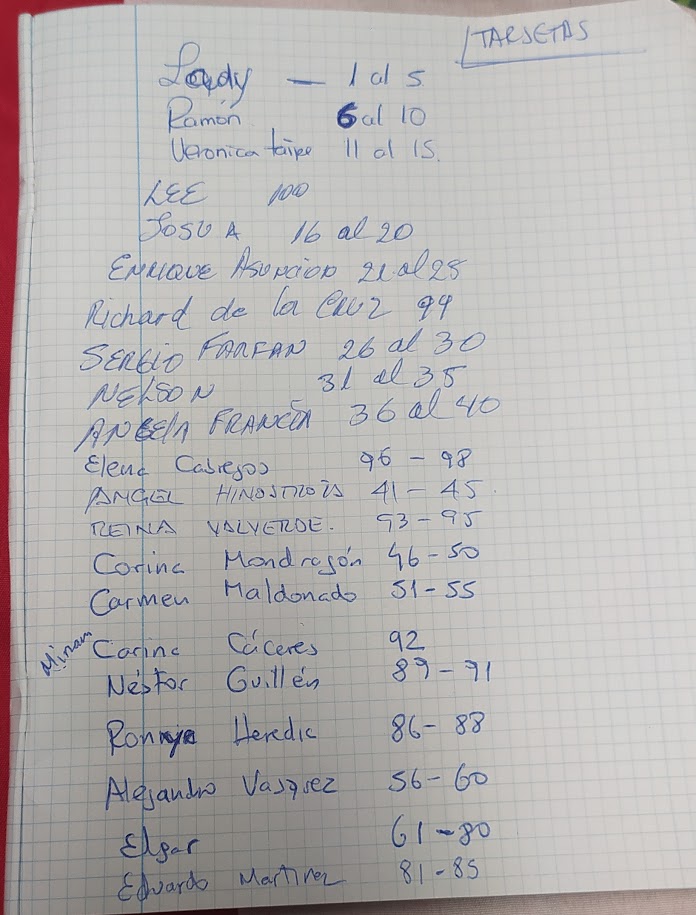 TARJETAS
Lady — 1 al 5
Ramón 6 al 10
Veronica taipe 11 al 15.
LEE 100
JOSUA 16 al 20
ENRIQUE ASUNCION 21 al 25
Richard de la CRUZ 99
SERGIO FARFAN 26 al 30
NELSON 31 al 35
ANGELA FRANCIA 36 al 40
Elena Cabrejos 96 - 98
ANGEL HINOSTROZA 41 - 45.
REINA VALVERDE. 93 - 95
Corina Mondragón 46 - 50
Carmen Maldonado 51 - 55
Carina Cáceres 92
Néstor Guillén 89 - 91
Heredia 86 - 88
Alejandro Vasquez 56 - 60
Elgar 61 - 80
Eduardo Martinez 81 - 85